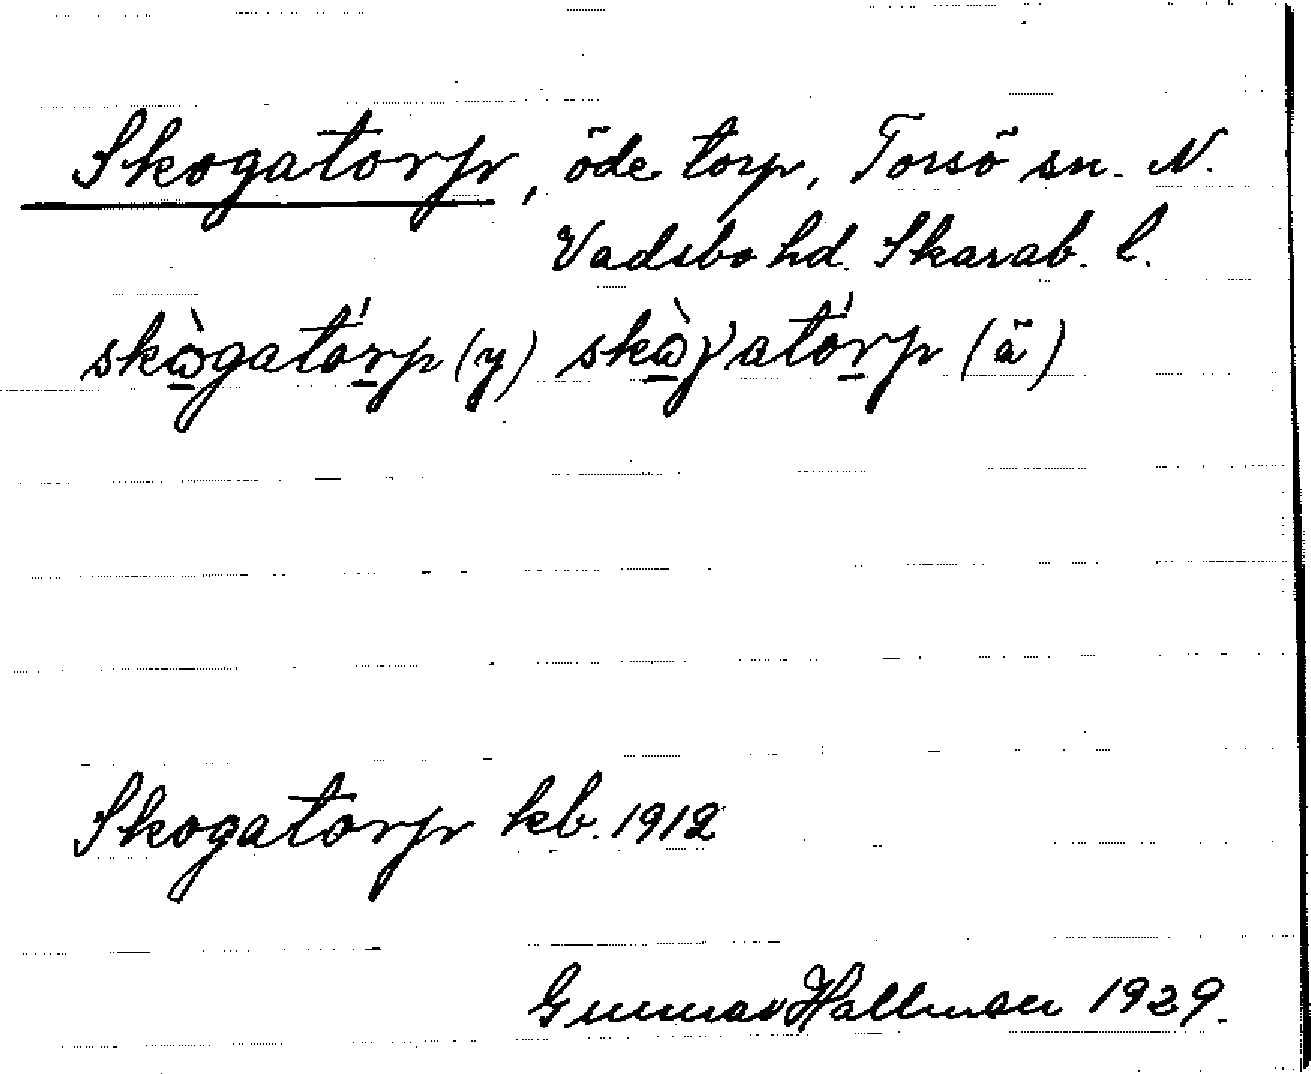 Skogatorp, öde torp, Torsö sn. N.
Vadsbo hd. Skarab. l.
skògatórp (y) skòγatórp (ä)
Skogatorp kb. 1912
Gunnar Hallman 1929.